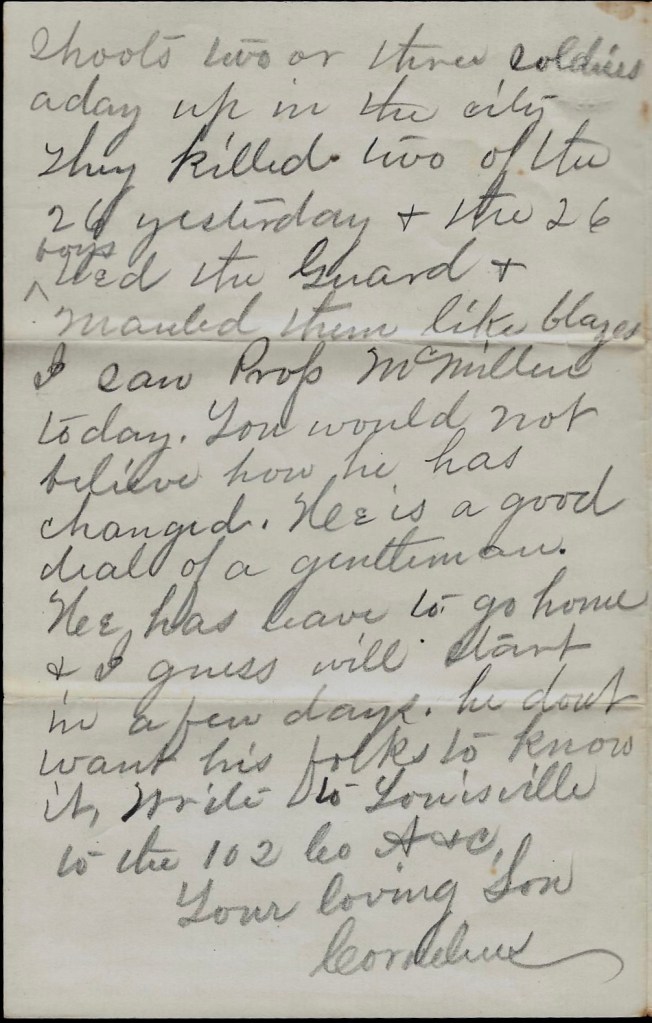 shoots two or three soldiers
a day up in the city
They killed two of the
26 yesterday & the 26
boys
^ tied the Guard &
Mauled them like blazes
I saw Prof McMillen
today. You would not
believe how he has
changed. Hee is a good
deal of a gentleman.
Hee has leave to go home
& I guess will start
in a few days. he dont
want his folks to know
it, Write to Louisville
to the 102 Co A &c,
Your loving Son
Cornelius